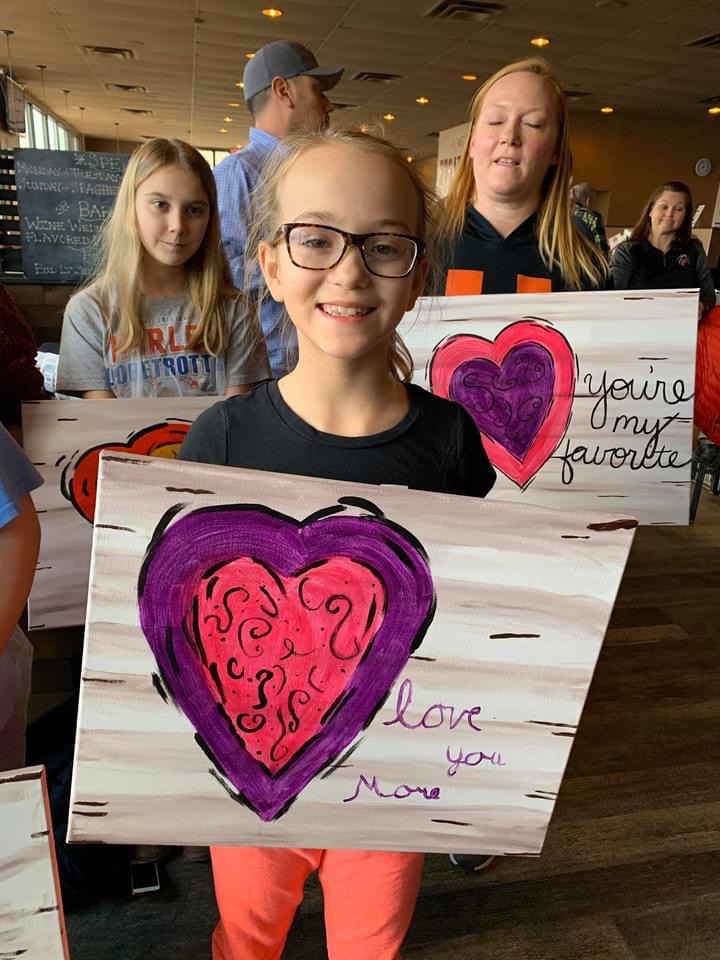 MONDAY - TUESDAY
SUNDAY - SPAGHE
BAR
WINE WEDN
FLAVORED
HARLE
LOBETROTT
you're
my
favorite
love
you
More